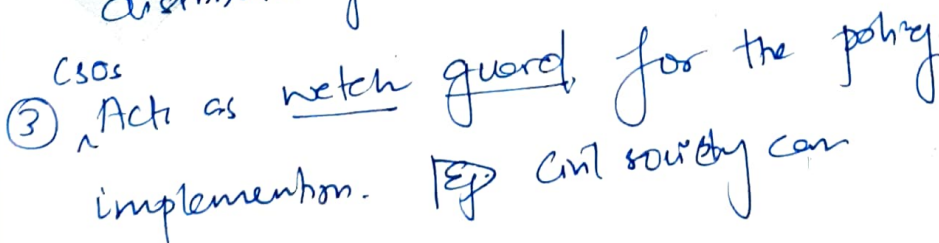 CSOs
③ ^ Acts as watch guard, for the policy
implemention. Eg. Civil society can